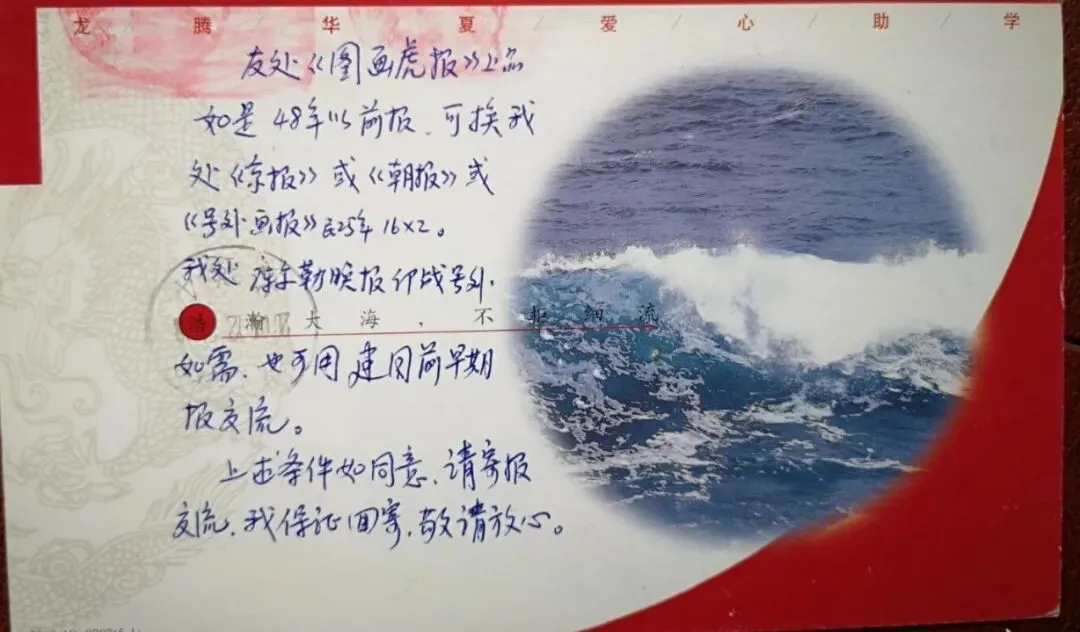 龙 / 腾 / 华 / 夏 / 爱 / 心 / 助 / 学
友处《图画虎报》上品
如是48年以前报,可换我
处《京报》或《朝报》或
《号外画报》民25年16×2。
我处 勒晚报 战号外.
浩瀚大海,不拒细流
如需,也可用建国前早期
报交流。
上述条件如同意,请寄报
交流,我保证回寄,敬请放心。